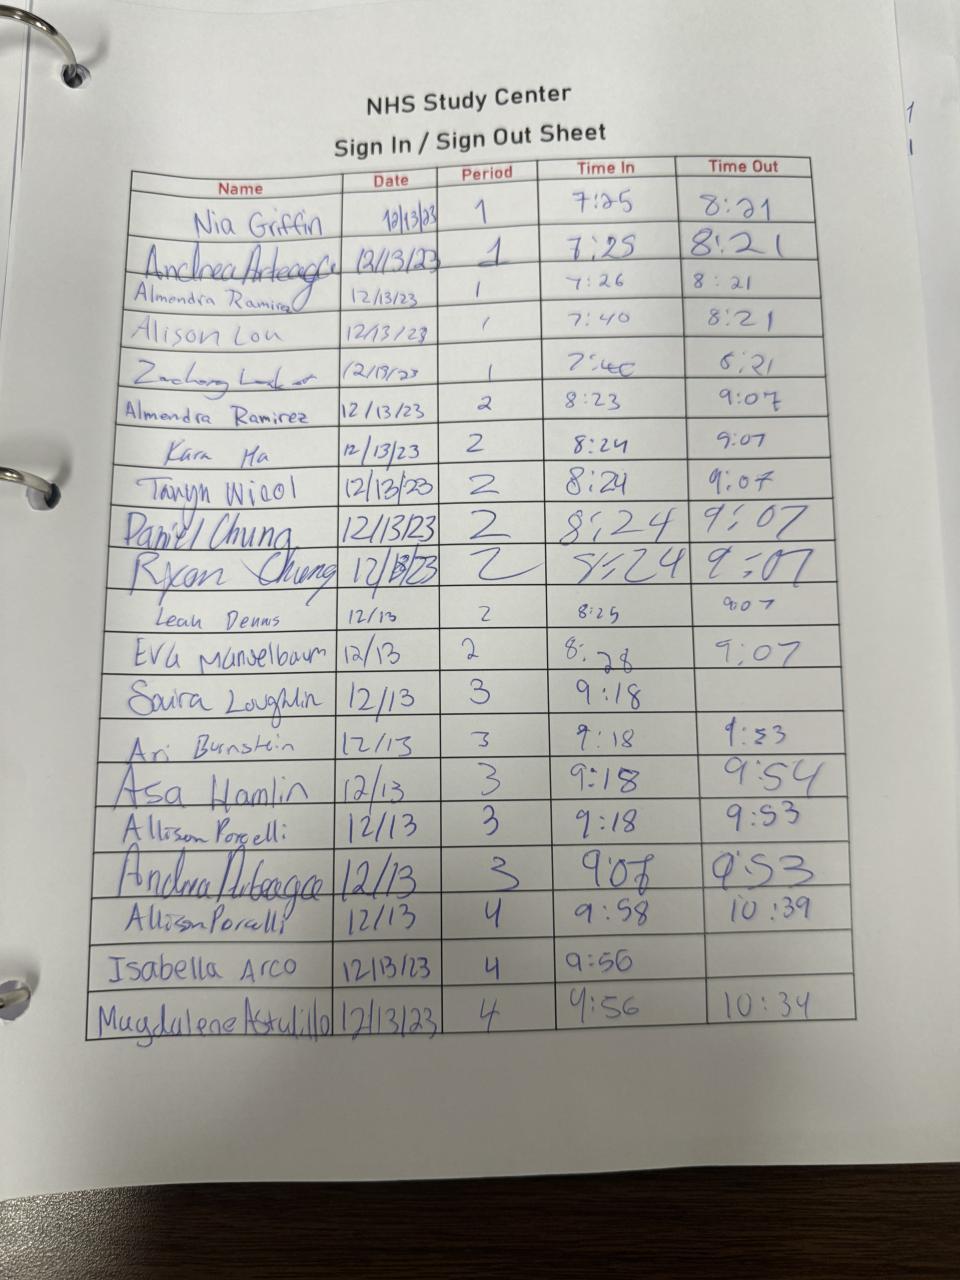 NHS Study Center
Sign In / Sign Out Sheet
Name Date Period Time In Time Out
Nia Griffin 12/13/23 1 7:25 8:21
Andrea Arteaga 12/13/23 1 7:25 8:21
Almendra Ramirez 12/13/23 1 7:26 8:21
Alison Lou 12/13/23 1 7:40 8:21
Zachary 1 8:21
Almendra Ramirez 12/13/23 2 8:23 9:07
Kara Ma 12/13/23 2 8:24 9:07
12/13/23 2 8:24 9:07
Daniel Chung 12/13/23 2 8:24 9:07
Ryan Chung 12/13/23 2 8:24 9:07
Leah Dennis 12/13 2 8:25 9:07
Eva 12/13 2 8:28 9:07
Saira Loughlin 12/13 3 9:18
Ari Burnstein 12/13 3 9:18 9:53
Asa Hamlin 12/13 3 9:18 9:54
Allison Porcelli 12/13 3 9:18 9:53
Andrea Arteaga 12/13 3 9:07 9:53
Allison Porcelli 12/13 4 9:58 10:39
Isabella Arco 12/13/23 4 9:56
Magdalene Astulillo 12/13/23 4 9:56 10:34